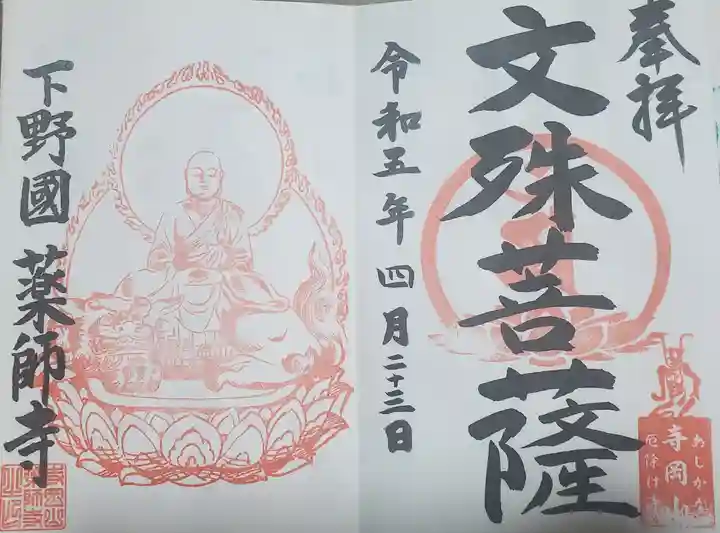 奉拝
文殊菩薩
令和五年四月二十三日
あしかが
寺岡山
厄除け
下野國 薬師寺